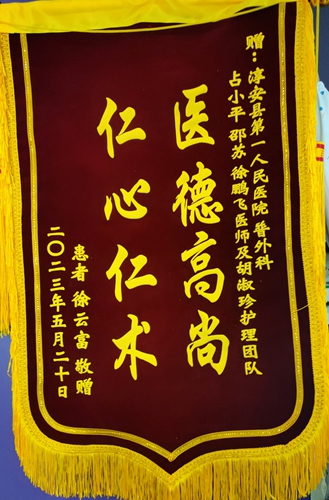 赠：淳安县第一人民医院普外科
占小平 邵苏 徐鹏飞医师及胡淑珍护理团队
医德高尚
仁心仁术
患者 徐云富 敬赠
二〇二三年五月二十日